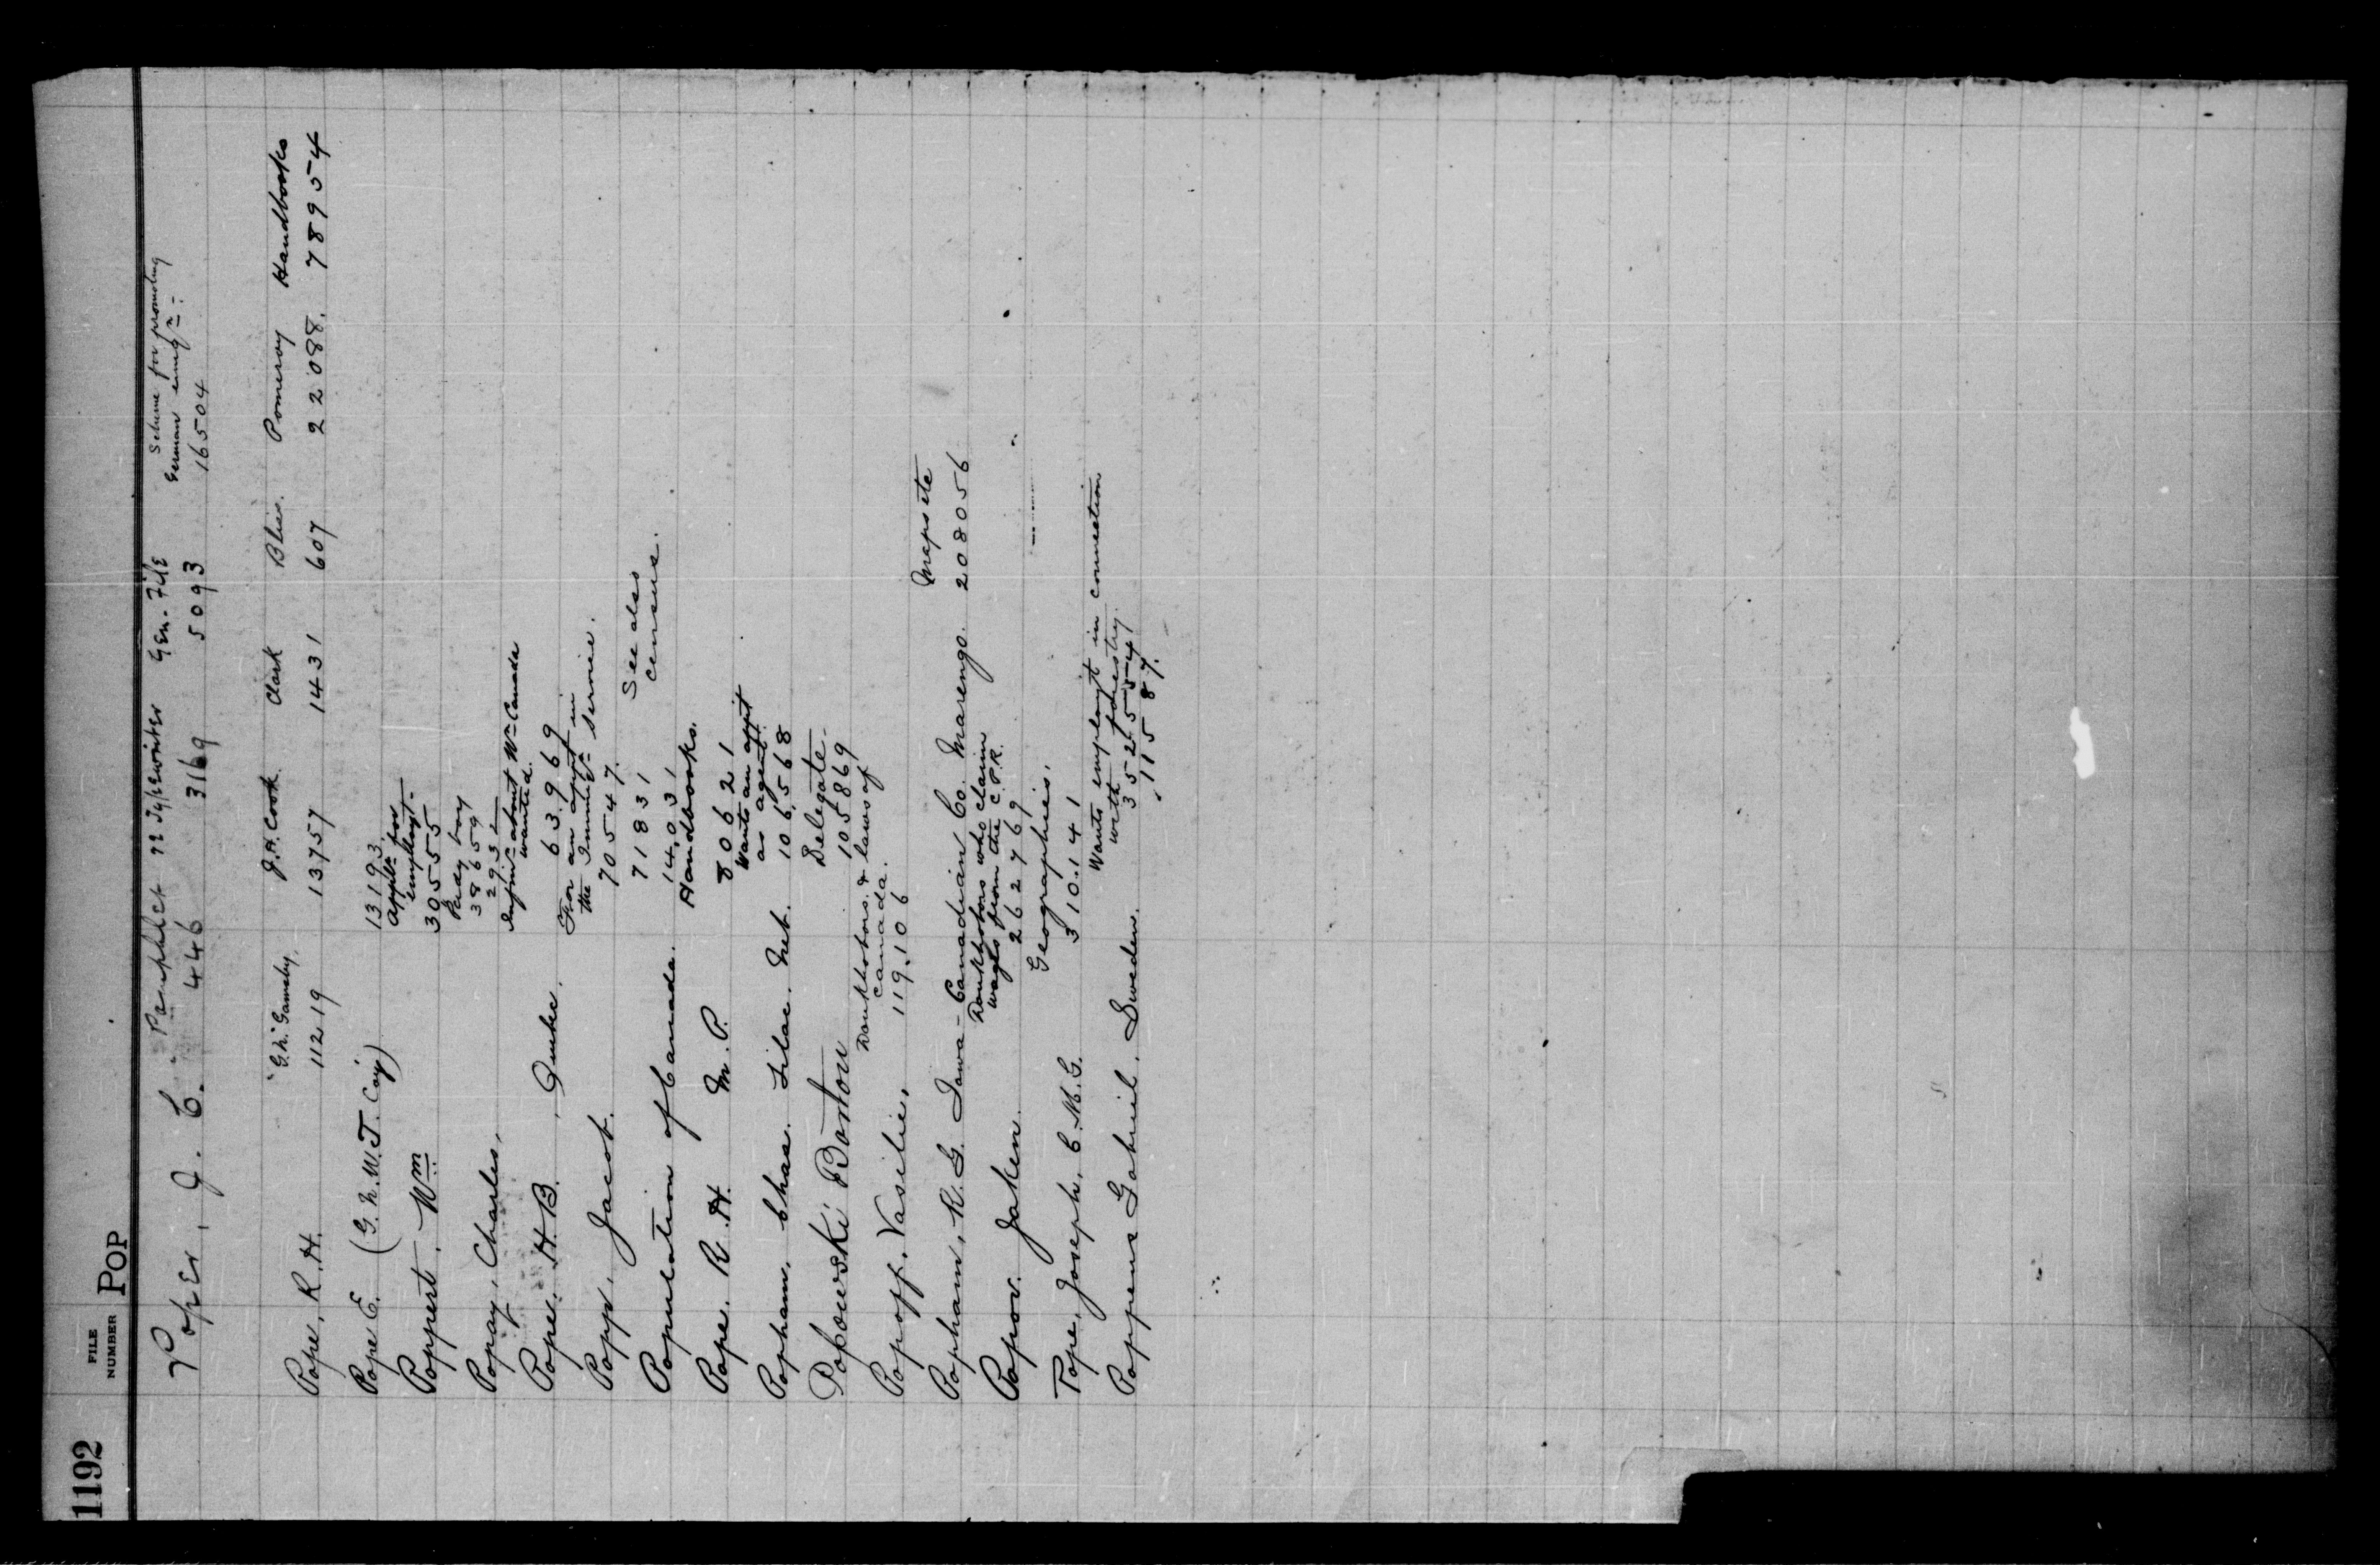 1192
FILE
NUMBER
POP
Pamphlet re Typewriter Gen. File Scheme for promoting
German emig<sup>n</sup>.
Poper, J. C. 446 3169 5093 16504
"G.N." Gamsby. J.H. Cook Clark Bliss. Pomeroy Handbooks
Pope, R. H. 11219 13757 1431 607 22088. 789954
Pope E. (G.N.W.T. Coy) 13193
Applt<sup>n</sup> for
employt.
Poppert, Wm 30555
38659
2931
Popay, Charles,
Inform<sup>n</sup> about W<sup>n</sup> Canada
wanted.
Pope. H. B. , Quebec. 63969
For an appt in
the Immig<sup>n</sup> service.
Popp, Jacob. 70547.
71831 See also
Population of Canada. 14,031 Census.
Handbooks.
Pope. R. H. M. P. 80621
Wants an appt
as agent.
Popham, Chas. Lilac. Neb. 106,568
Delegate.
Popowski Boston 105869
Doukhobors. & laws of
Canada.
Popoff, Vasilie, 119.106 Maps etc
Popham, R. G. Iowa-Canadian Co. Marengo. 208056
Doukhobors who claim
wages from the C.P.R.
Popov. Jaken 262769
Geographies.
Pope, Joseph, C.M.G. 310.141
Wants employt in connection
with forestry
Poppens Gabriel. Sweden. 352554
" 11587.